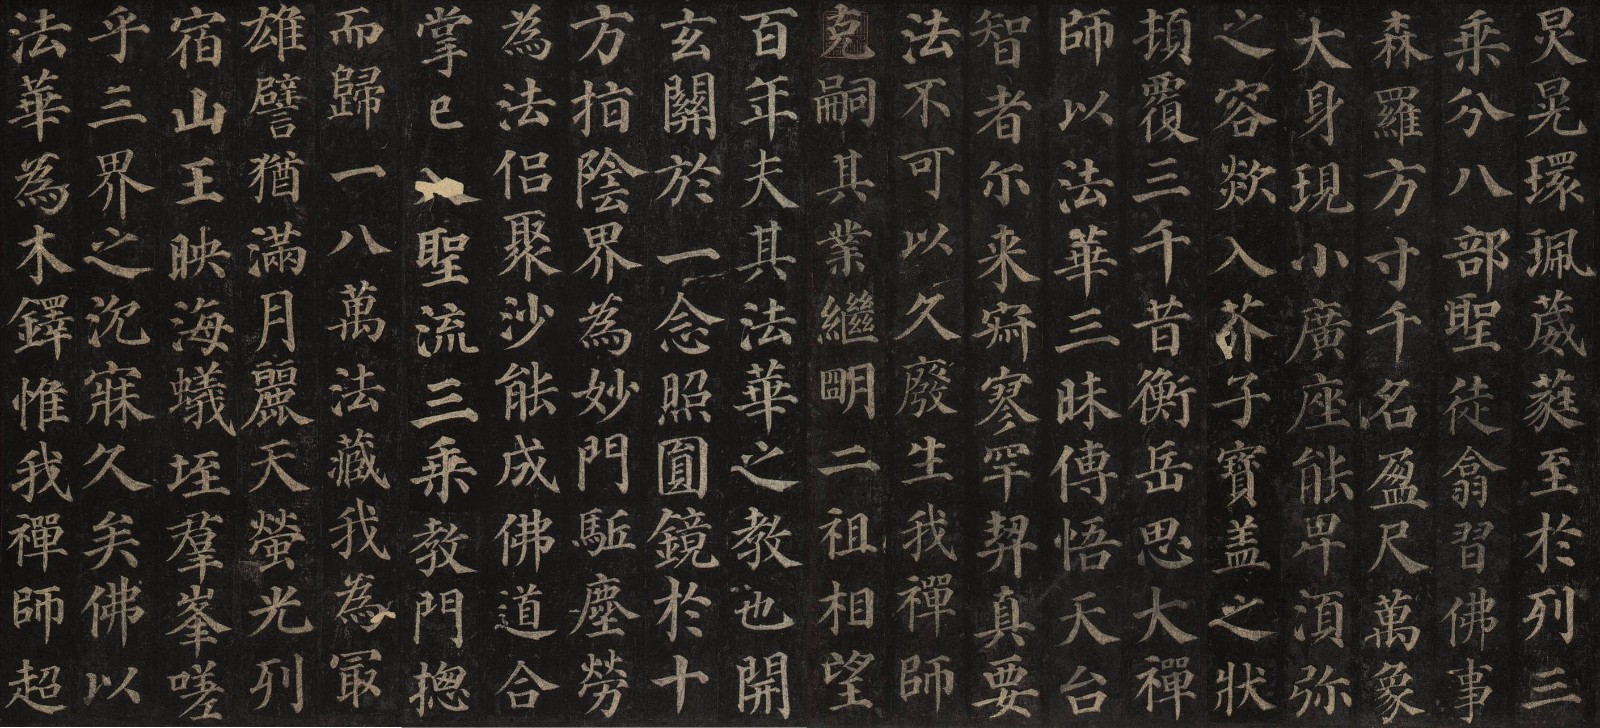 炅晃環珮葳蕤至於列三
乘分八部聖徒翕習佛事
森羅方寸千名盈尺萬象
大身現小廣座能卑湏弥
之容欻入芥子寶盖之狀
頓覆三千昔衡岳思大禪
師以法華三昧傳悟天台
智者尔来寂寥罕契真要
法不可以久廢生我禪師
克嗣其業繼明二祖相望
百年夫其法華之教也開
玄關於一念照圓鏡於十
方指陰界為妙門駈塵勞
為法侣聚沙能成佛道合
掌已入聖流三乘教門揔
而歸一八萬法藏我為冣
雄譬猶滿月麗天螢光列
宿山王映海蟻垤群峯嗟
乎三界之沉寐久矣佛以
法華為木鐸惟我禪師超